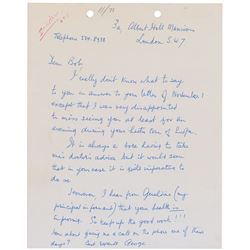 11/78
3a, Albert Hall Mansions
Telephone 584-8938 London S.W.7
Dear Bob,
I really don't know what to say
to you in answer to your letter of November 1
except that I was very disappointed
to miss seeing you at least for an
evening during your
It is always a bore having to take
one's doctor's advice but it would seem
that in your case it is quite imperative to
do so.
However I hear from Geraldine (my
principal informant) that your health is
improving. So keep up the good work!!!
How about giving me a call on the phone one of these
days?